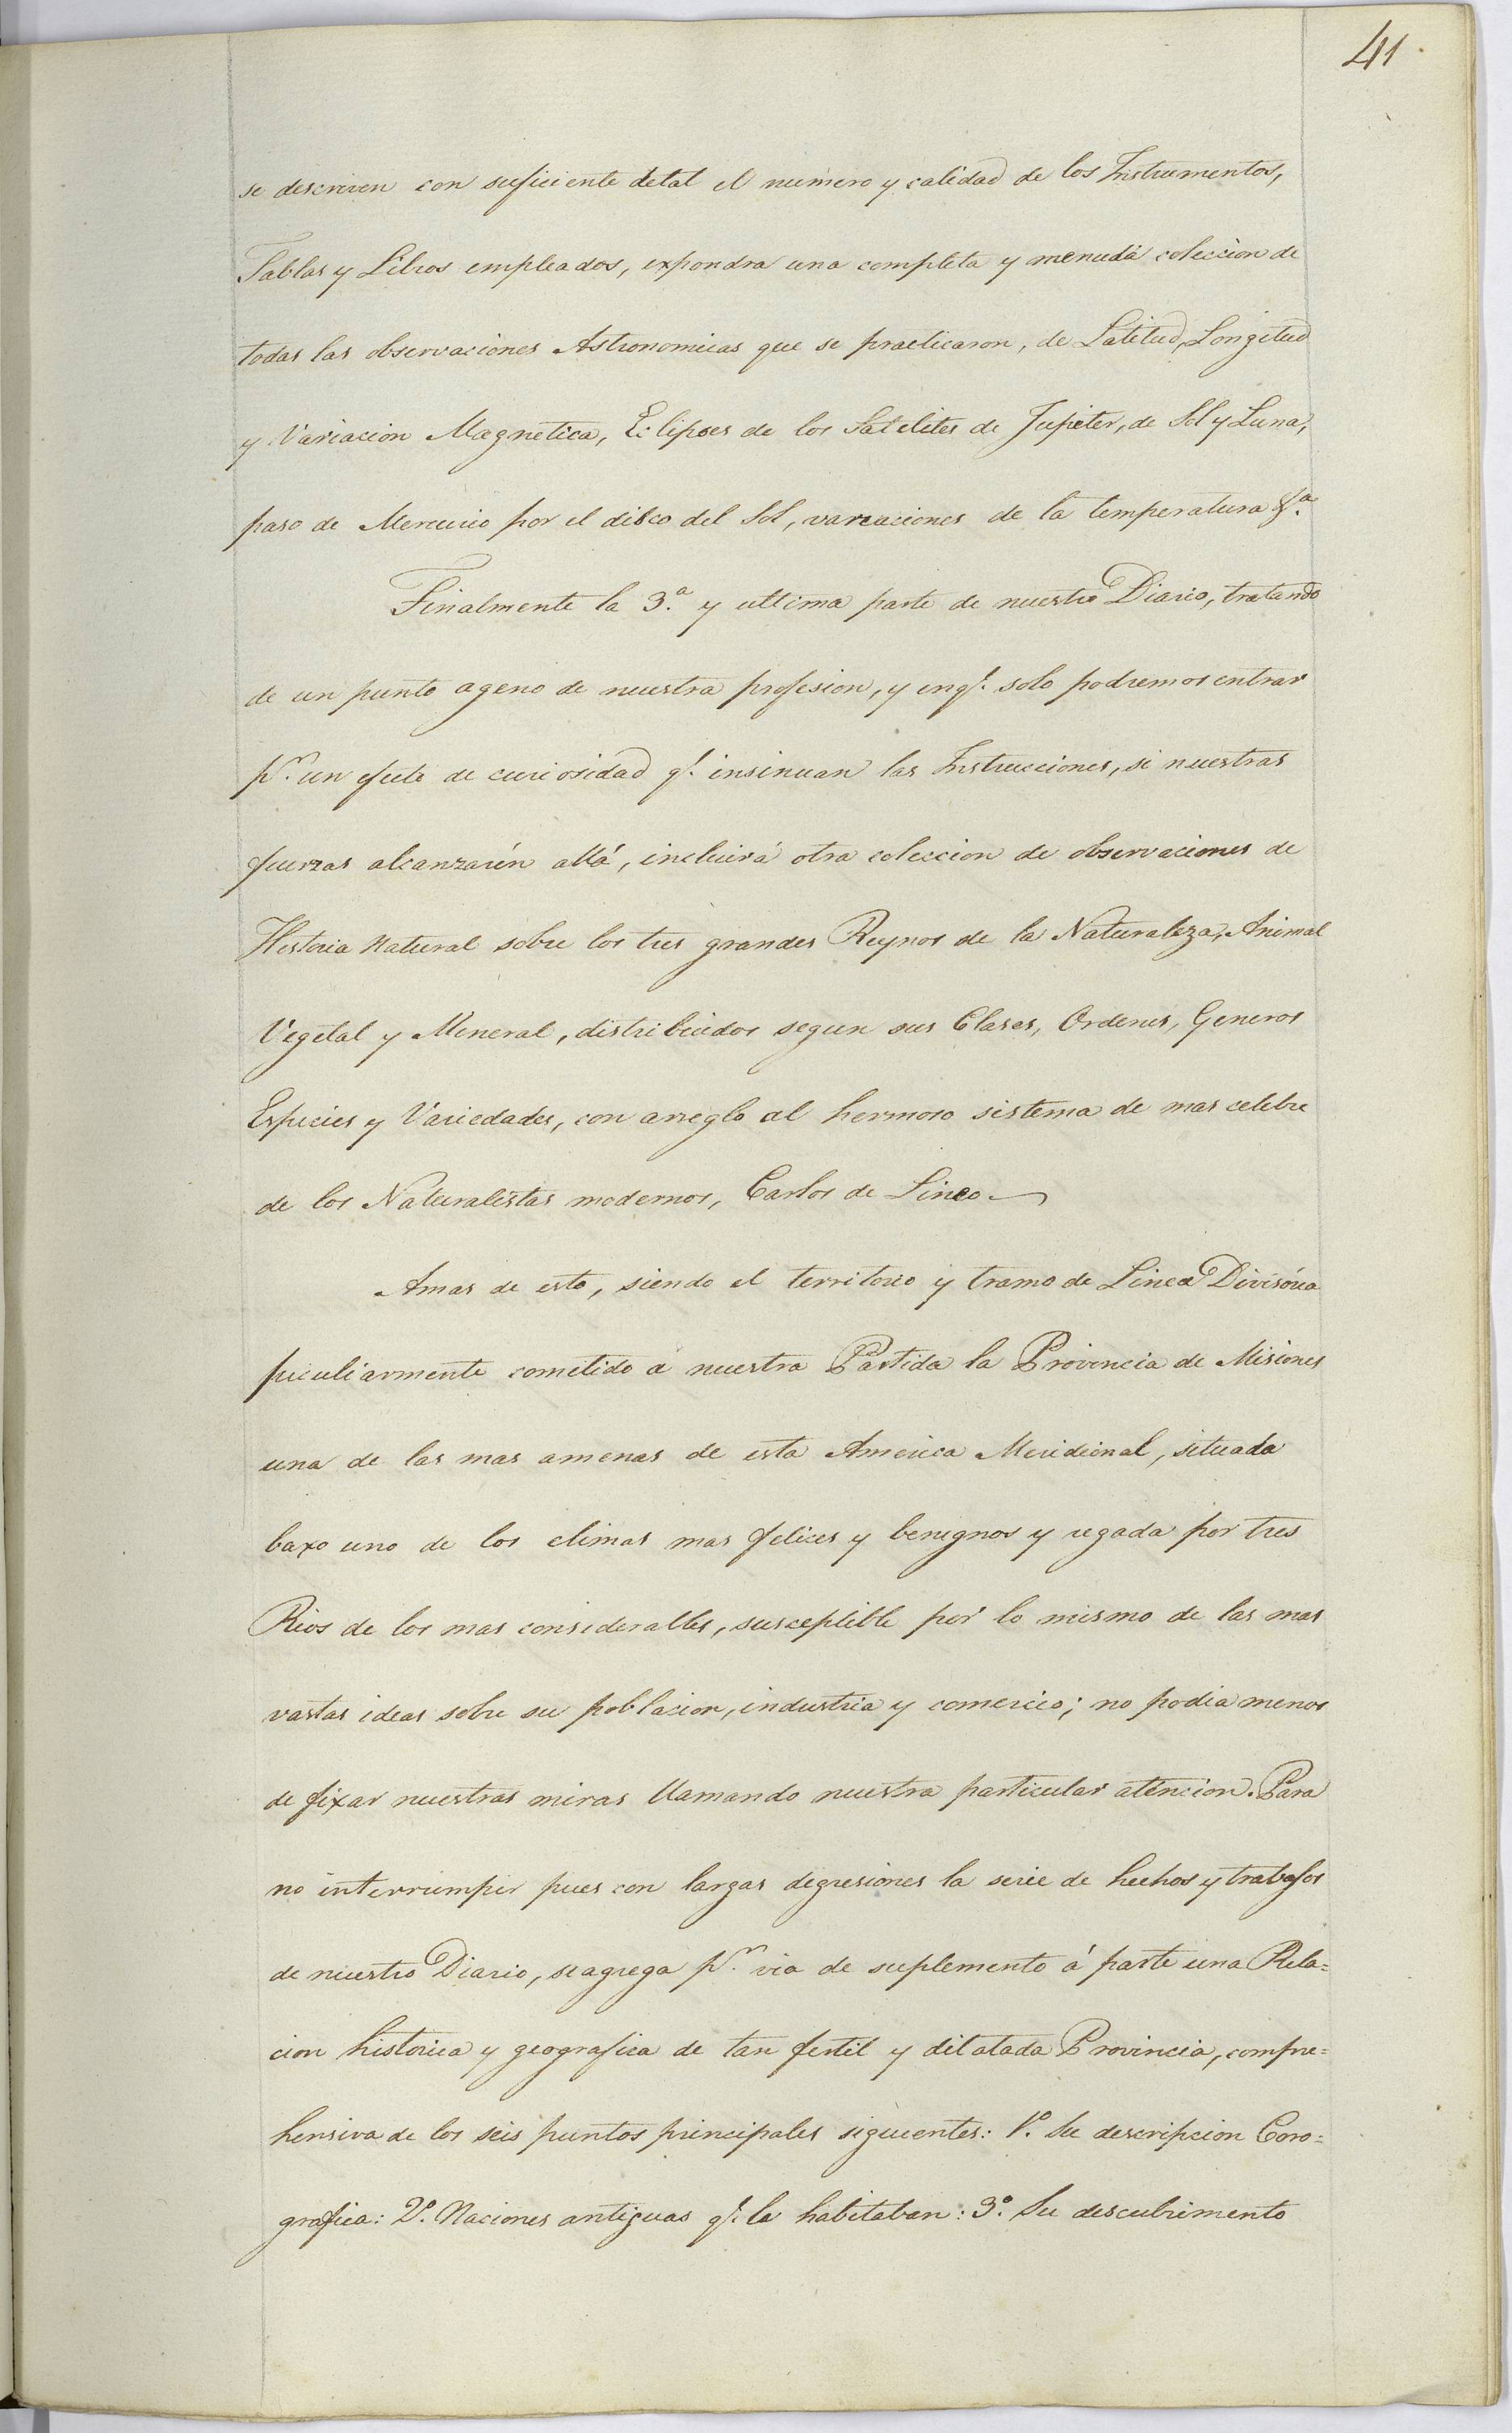 41
se descriven con suficiente detal el numero y calidad de los Instrumentos,
Tablas y Libros empleados, expondra una completa y menuda coleccion de
todas las observaciones Astronomicas que se practicaron, de Latitud, Longitud
y Variacion Magnetica, Eclipses de los Satelites de Jupiter, de Sol y Luna,
paso de Mercurio por el disco del Sol, variaciones de la temperatura &.ª
Finalmente la 3.ª y ultima parte de nuestro Diario, tratando
de un punto ageno de nuestra profesion, y enq.e solo podremos entrar
p.r un efecto de curiosidad q.e insinuan las Instrucciones, si nuestras
fuerzas alcanzarén allá, incluirá otra coleccion de observaciones de
Historia Natural sobre los tres grandes Reynos de la Naturaleza, Animal
Vegetal y Mineral, distribuidos segun sus Clases, Ordenes, Generos
Especies y Variedades, con arreglo al hermoso sistema de mas celebre
de los Naturalistas modernos, Carlos de Lineo
Amas de esto, siendo el territorio y tramo de Linea Divisória
peculiarmente cometido á nuestra Partida la Provincia de Misiones
una de las mas amenas de esta America Meridional, situada
baxo uno de los climas mas felices y benignos y regada por tres
Rios de los mas considerables, susceptible por lo mismo de las mas
vastas ideas sobre su poblacion, industria y comercio; no podia menos
de fixar nuestras miras llamando nuestra particular atencion. Para
no interrumpir pues con largas degresiones la serie de hechos y trabajos
de nuestro Diario, se agrega p.r via de suplemento á parte una Rela=
cion historica y geografica de tan fertil y dilatada Provincia, compre=
hensiva de los seis puntos principales siguientes: 1.º Su descripcion Coro=
grafica: 2.º Naciones antiguas q.e la habitaban: 3.º Su descubrimento